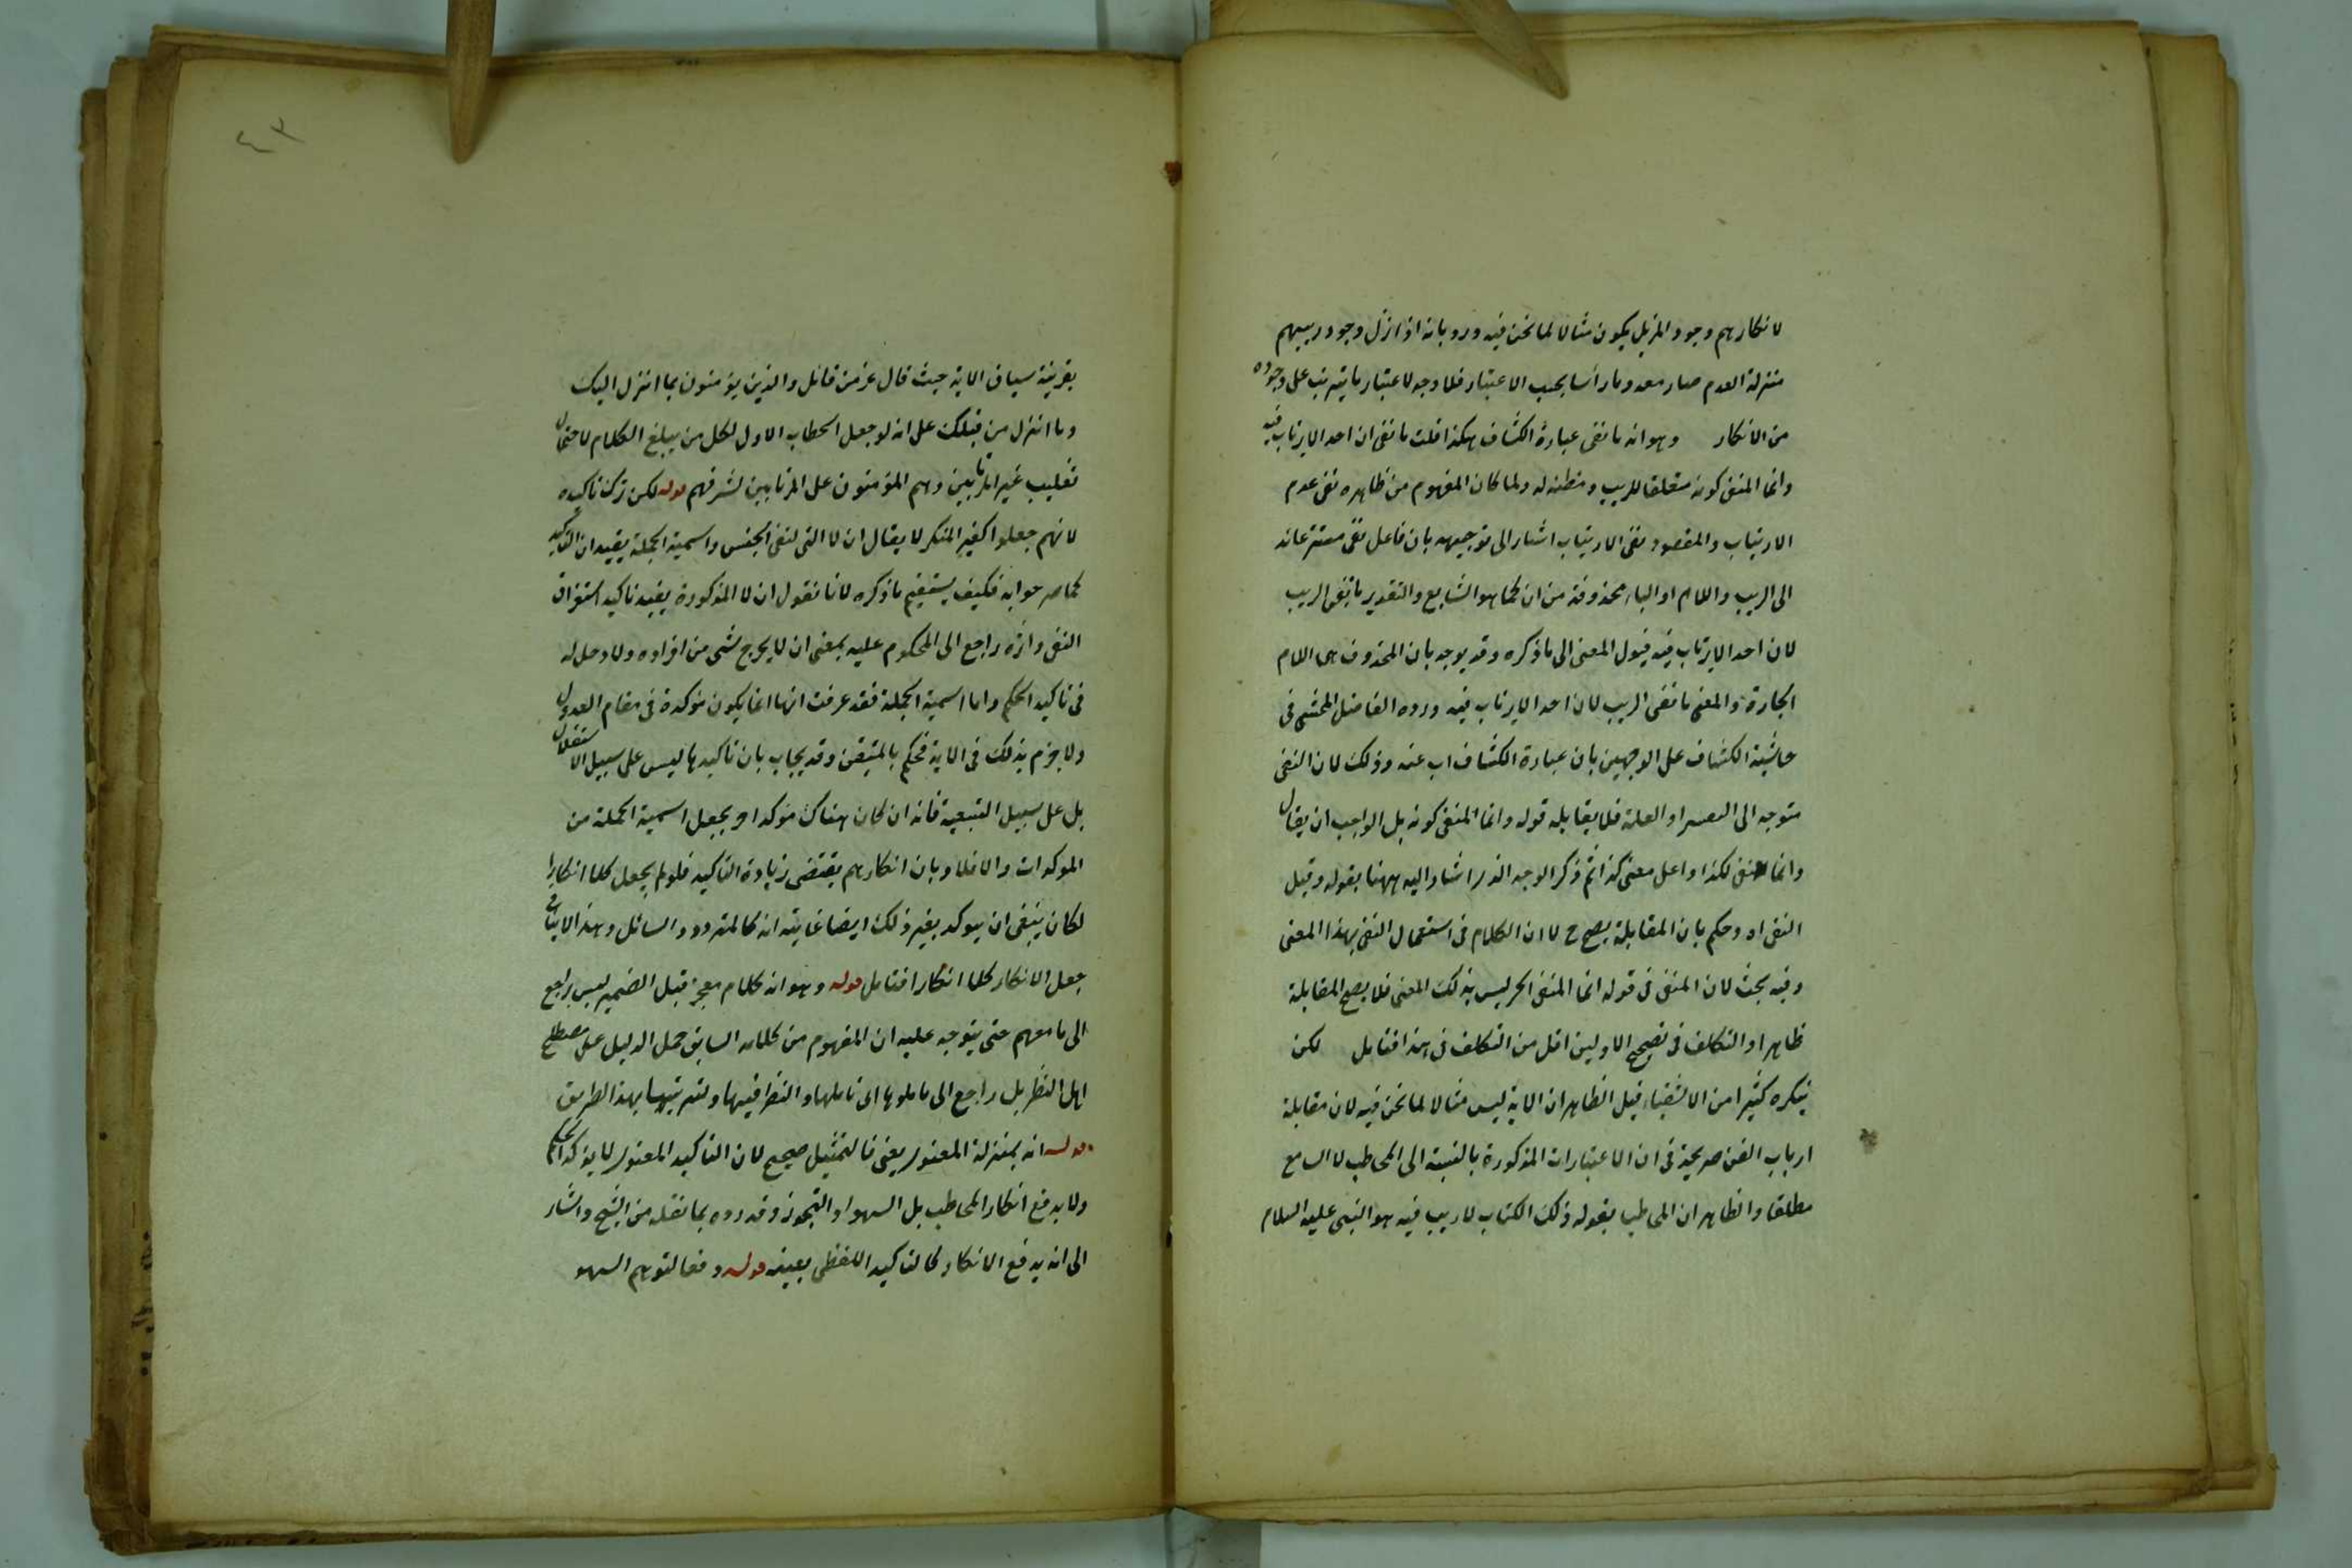 لانكارهم وجود المزيل يكون مثالا لما نحن فيه ورد بانه اذا نزل وجود ريبهم
منزلة العدم صار معدوما رأسا بحسب الاعتبار فلا وجه لاعتبار ما يترتب على وجوده
من الانكار وهو انه ما نفى عبارة الكشاف هكذا قلت ما نفى ان احدا لا يرتاب فيه
وانما المنفى كونه متعلقا للريب ومظنة له ولما كان المفهوم من ظاهره نفى عدم
الارتياب والمقصود نفى الارتياب اشار الى توجيهه بان فاعل نفى مستتر عائد
الى الريب واللام او الباء محذوفة من ان كما هو الشايع والتقدير ما نفى الريب
لان احدا لا يرتاب فيه فيؤل المعنى الى ما ذكره وقد يوجه بان المحذوف هى اللام
الجارة والمعنى ما نفى الريب لان احدا لا يرتاب فيه ورده الفاضل المحشى فى
حاشية الكشاف على الوجهين بان عبارة الكشاف اب عنه وذلك لان النفى
متوجه الى او العلة فلا يقابله قوله وانما المنفى كونه بل الواجب ان يقال
وانما نفى لكذا او على معنى كذا ثم ذكر الوجه الذى اشار اليه ههنا بقوله وقيل
النفى اه وحكم بان المقابلة يصح ح لان الكلام فى استعمال النفى بهذا المعنى
وفيه بحث لان المنفى فى قوله انما المنفى الخ ليس بذلك المعنى فلا يصح المقابلة
ظاهرا والتكلف فى تصحيح الاولين اقل من التكلف فى هذا فتامل لكن
ينكره كثيرا من الاشقياء قيل الظاهر ان الاية ليس مثالا لما نحن فيه لان مقابلة
ارباب الفن صريحة فى ان الاعتبارات المذكورة بالنسبة الى المخاطب لا السامع
مطلقا والظاهر ان المخاطب بقوله ذلك الكتاب لا ريب فيه هو النبى عليه السلام
٤٣
بقرينة سياق الاية حيث قال عز من قائل والذين يؤمنون بما انزل اليك
وما انزل من قبلك على انه لو جعل الخطاب الاول لكل من يبلغ الكلام لاحتمال
تغليب غير المرتابين وهم المؤمنون على المرتابين لشرفهم قوله لكن ترك تاكيده
لانهم جعلوا كغير المنكر لا يقال ان لا التى لنفى الجنس واسمية الجملة يفيدان التاكيد
كما صرحوا به فكيف يستقيم ما ذكره لانا نقول ان لا المذكورة يفيد تاكيد استغراق
النفى واثره راجع الى المحكوم عليه بمعنى ان لا يخرج شىء من افراده ولا دخل له
فى تاكيد الحكم واما اسمية الجملة فقد عرفت انها انما يكون مؤكدة فى مقام العدول
ولا جزم بذلك فى الاية فحكم بالمتيقن وقد يجاب بان تاكيدها ليس على سبيل الاستقلال
بل على سبيل التبعية فانه ان كان هناك مؤكد اخر يجعل اسمية الجملة من
المؤكدات والا فلا وبان انكارهم يقتضى زيادة التاكيد فلو لم يجعل كلا انكارا
لكان ينبغى ان يؤكد بغير ذلك ايضا غايته انه كالمتردد والسائل وهذا لا ينافى
جعل الانكار كلا انكار فتامل قوله وهو انه كلام معجز قيل الضمير ليس براجع
الى ما معهم حتى يتوجه عليه ان المفهوم من كلامه السابق حمل الدليل على مصطلح
اهل النظر بل راجع الى ما ملوها الى تاملها والنظر فيها وترتيبها بهذا الطريق
قوله انه بمنزلة المعنوى يعنى فالتمثيل صحيح لان التاكيد المعنوى لا يؤكد الحكم
ولا يدفع انكار المخاطب بل السهو او التجوز وقد رده بما نقله من الشيخ واشار
الى انه يدفع الانكار كالتاكيد اللفظى بعينه قوله دفعا لتوهم السهو